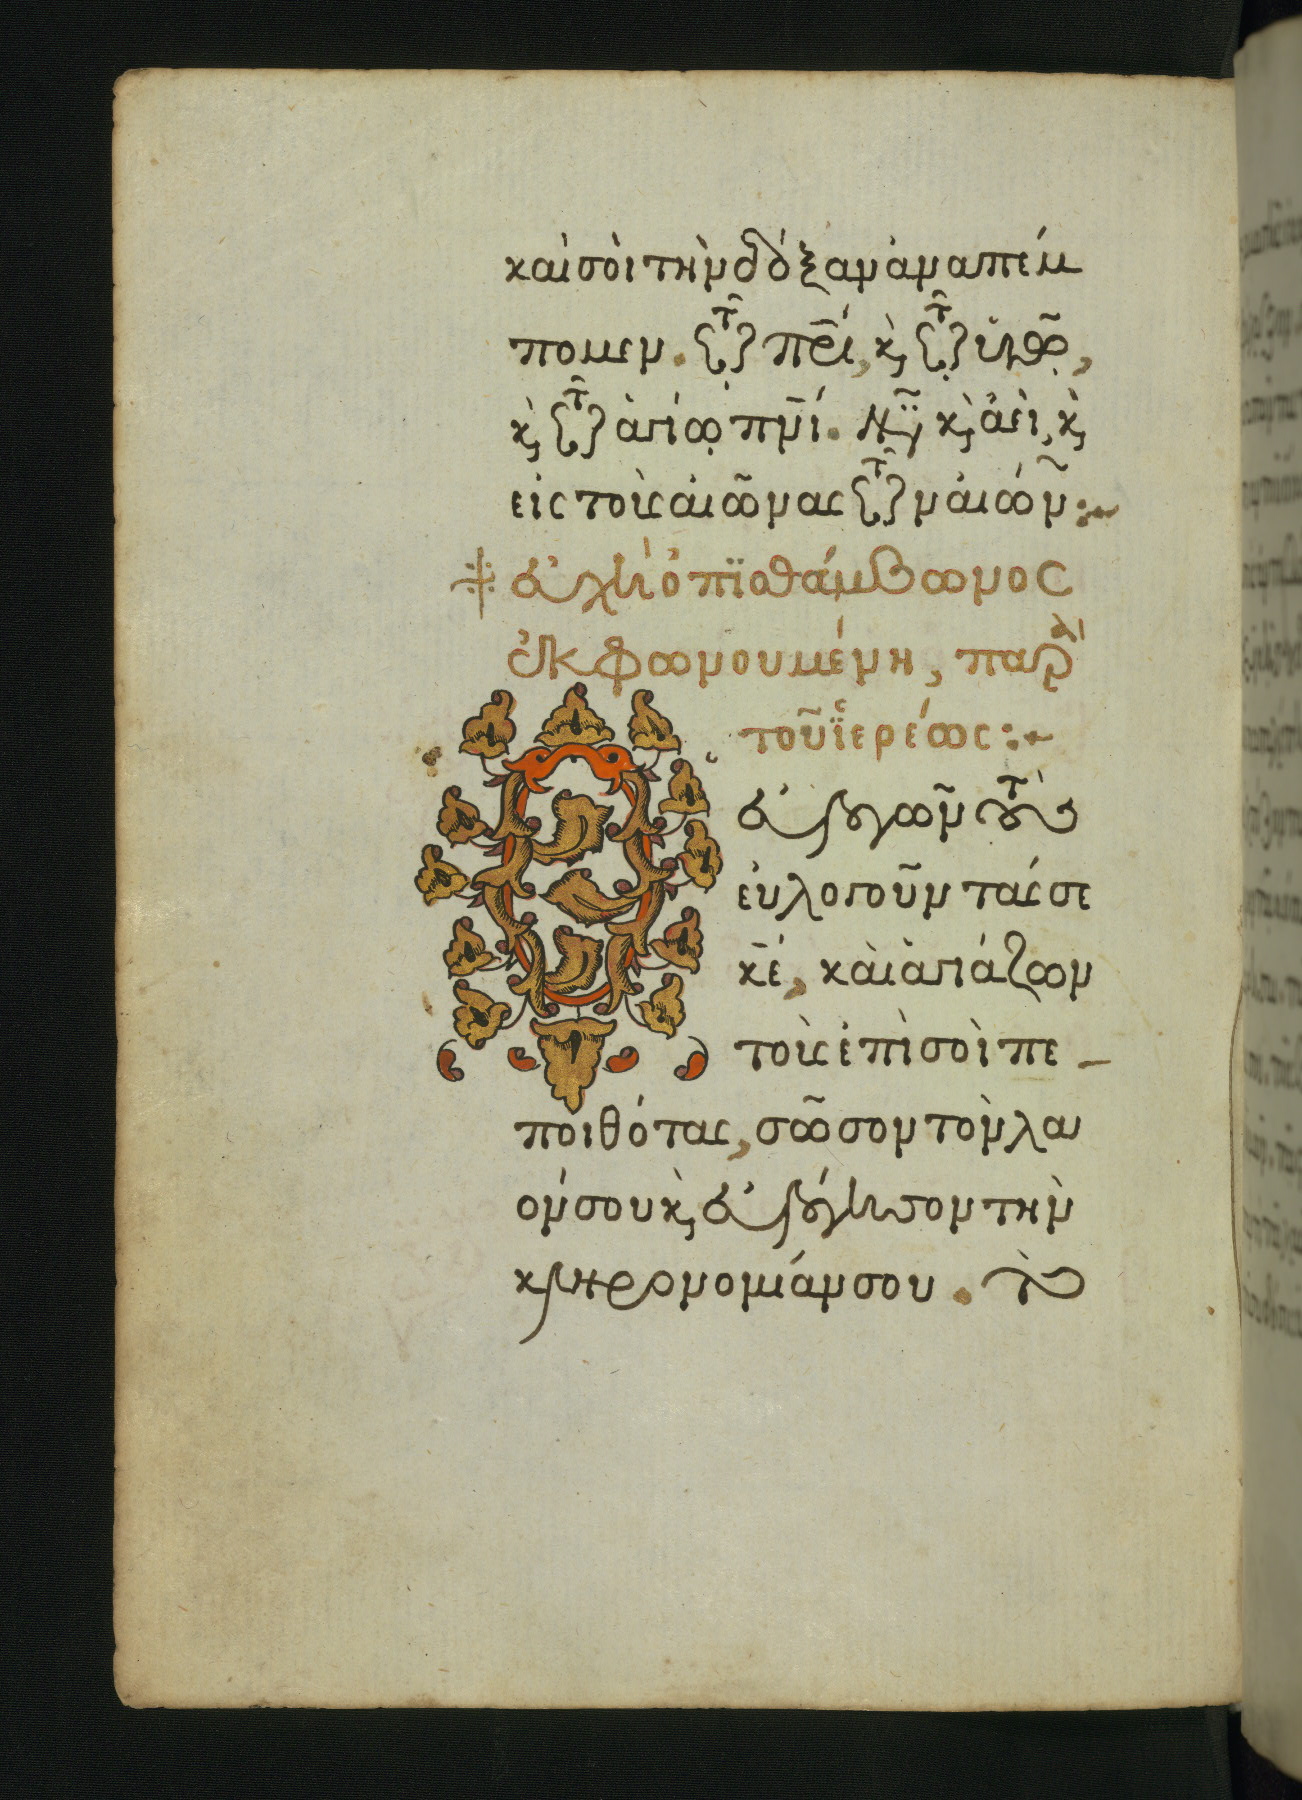 καὶ σοὶ τὴν δόξαν ἀναπέμ
πομεν. τῶ π̅ρι, κ̀ τῶ υἱῶ,
κ̀ τῶ ἁγίω π̅νι. νῦν κ̀ ἀεὶ, κ̀
εἰς τοὺς αἰῶνας τῶν αἰών:
εὐχὴ ὀπισθάμβωνος
ἐκφωνουμένη, παρὰ
τοῦ ἱερέως:
Ὁ εὐλογῶν τοὺς
εὐλογοῦντάς σε
κ̅ε, καὶ ἁγιάζων
τοὺς ἐπὶ σοὶ πε
ποιθότας, σῶσον τὸν λα
όν σου κ̀ εὐλόγησον τὴν
κληρονομίαν σου. τὸ